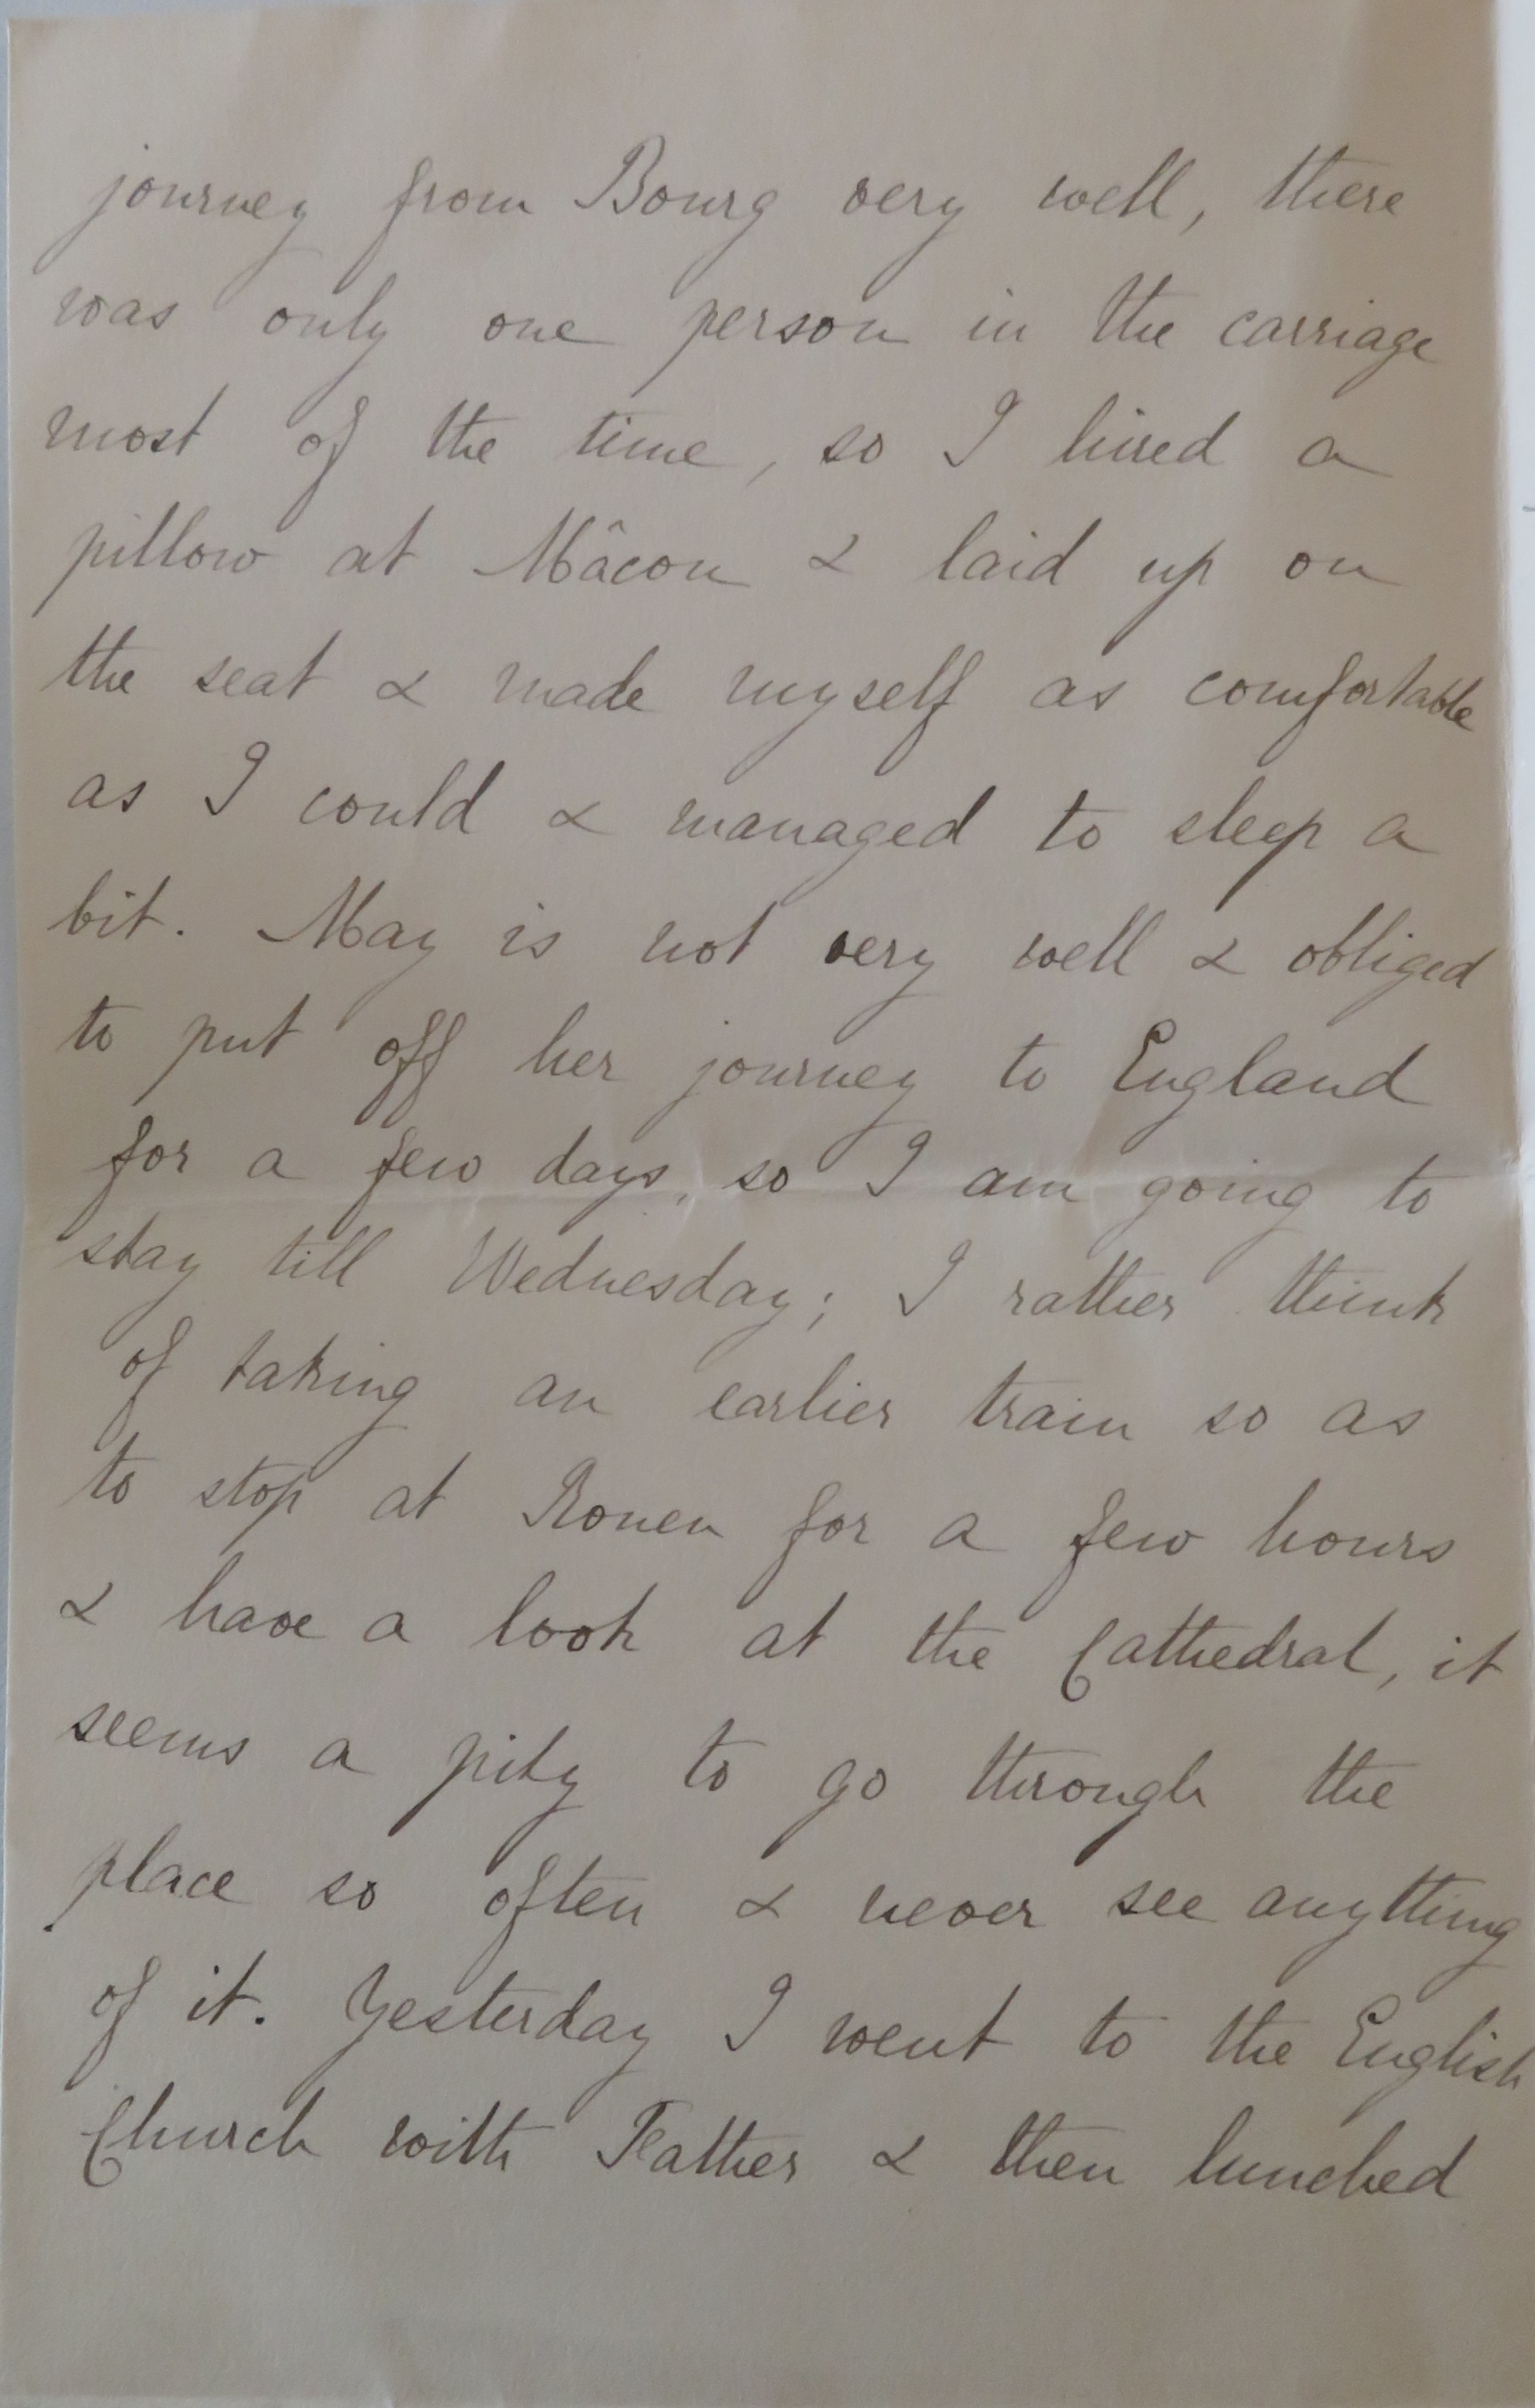 journey from Bourg very well, there
was only one person in the carriage
most of the time, so I hired a
pillow at Mâcon & laid up on
the seat & made myself as comfortable
as I could & managed to sleep a
bit. May is not very well & obliged
to put off her journey to England
for a few days, so I am going to
stay till Wednesday; I rather think
of taking an earlier train so as
to stop at Rouen for a few hours
& have a look at the Cathedral, it
seems a pity to go through the
place so often & never see anything
of it. Yesterday I went to the English
Church with Father & then lunched